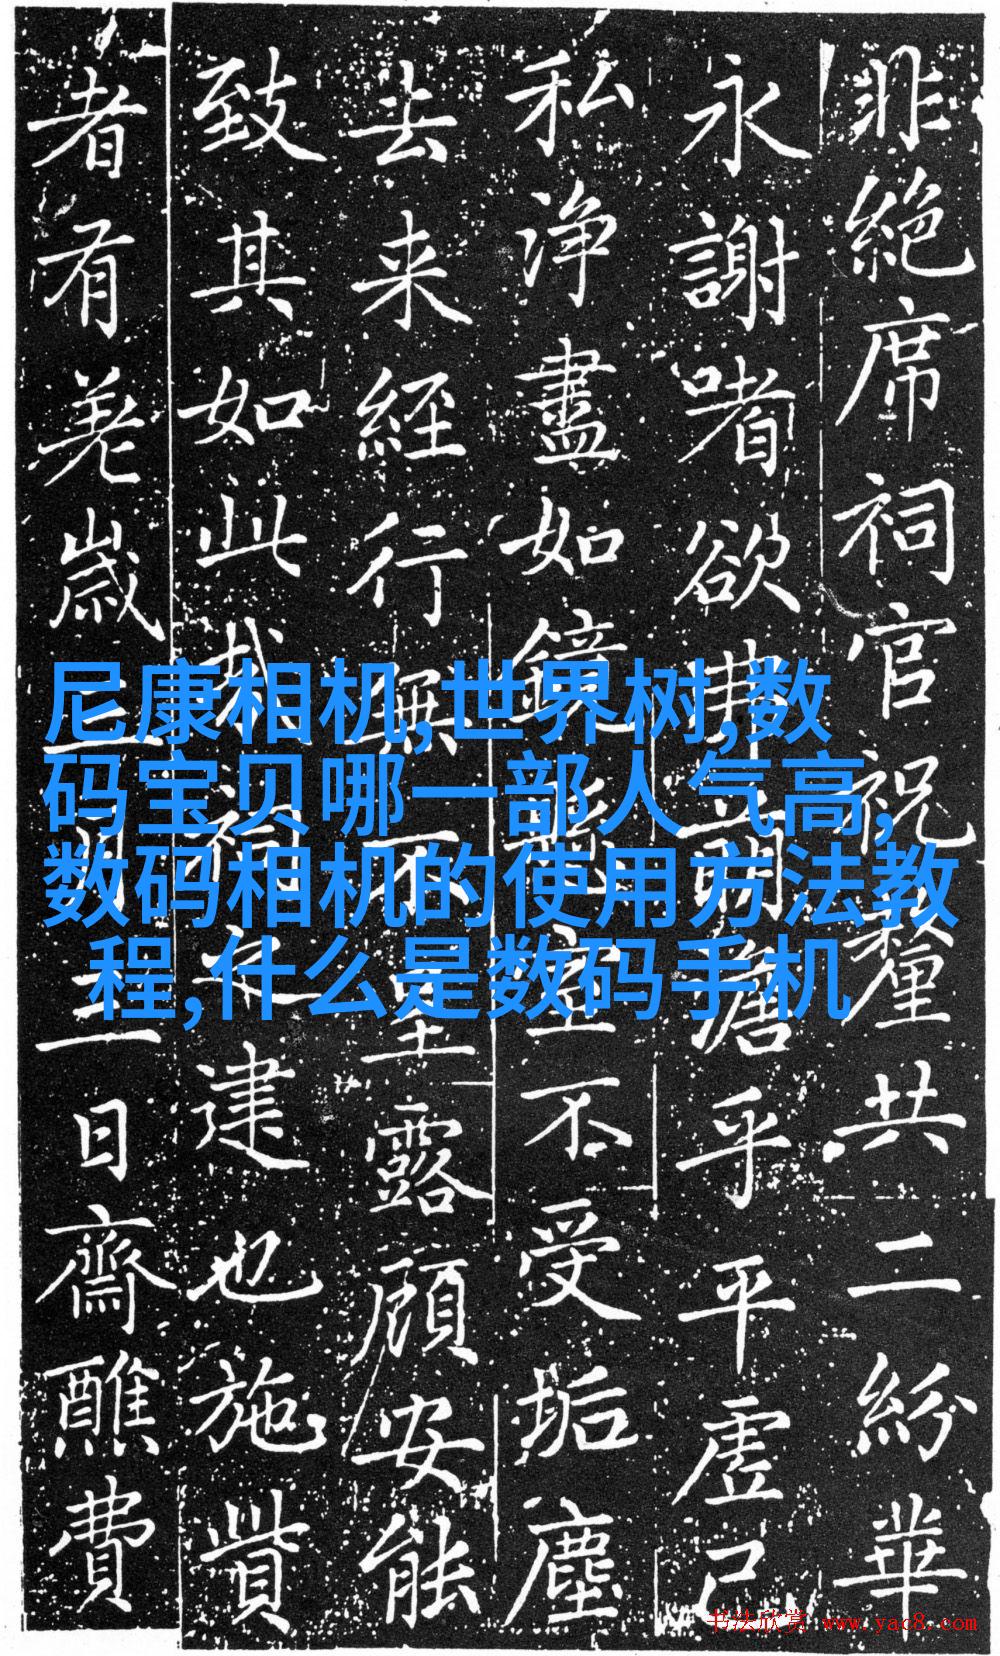 非絕席祠官祝釐共二紛華
永謝嗜欲乎平虛己
私淨盡如鏡空不受垢塵
去来経行無不露顧安能
致其如此哉建也施貲
者有歲三日齋醮費
尼康相机,世界树,数
码宝贝哪一部人气高,
数码相机的使用方法教
程,什么是数码手机
书法欣赏 www.yac8.com